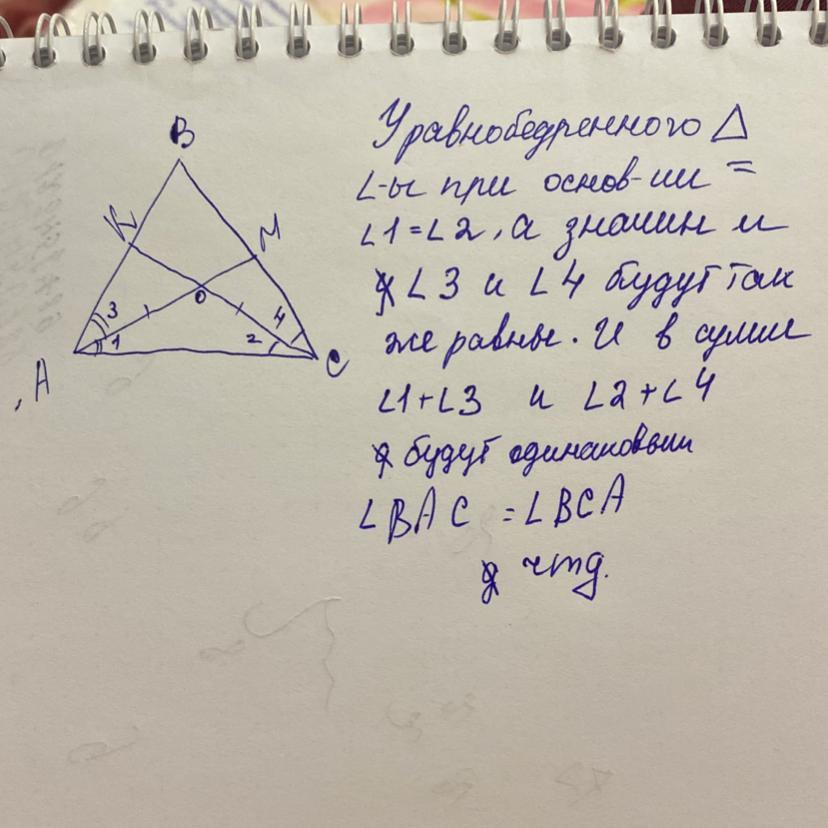 B
K
M
O
3
4
1
2
A
C
Уравнобедренного △
∠-ы при основ-ии =
∠1=∠2, а значит и
∠3 и ∠4 будут так
же равны. И в сумме
∠1+∠3 и ∠2+∠4
будут одинаковыми
∠BAC = ∠BCA
чтд.